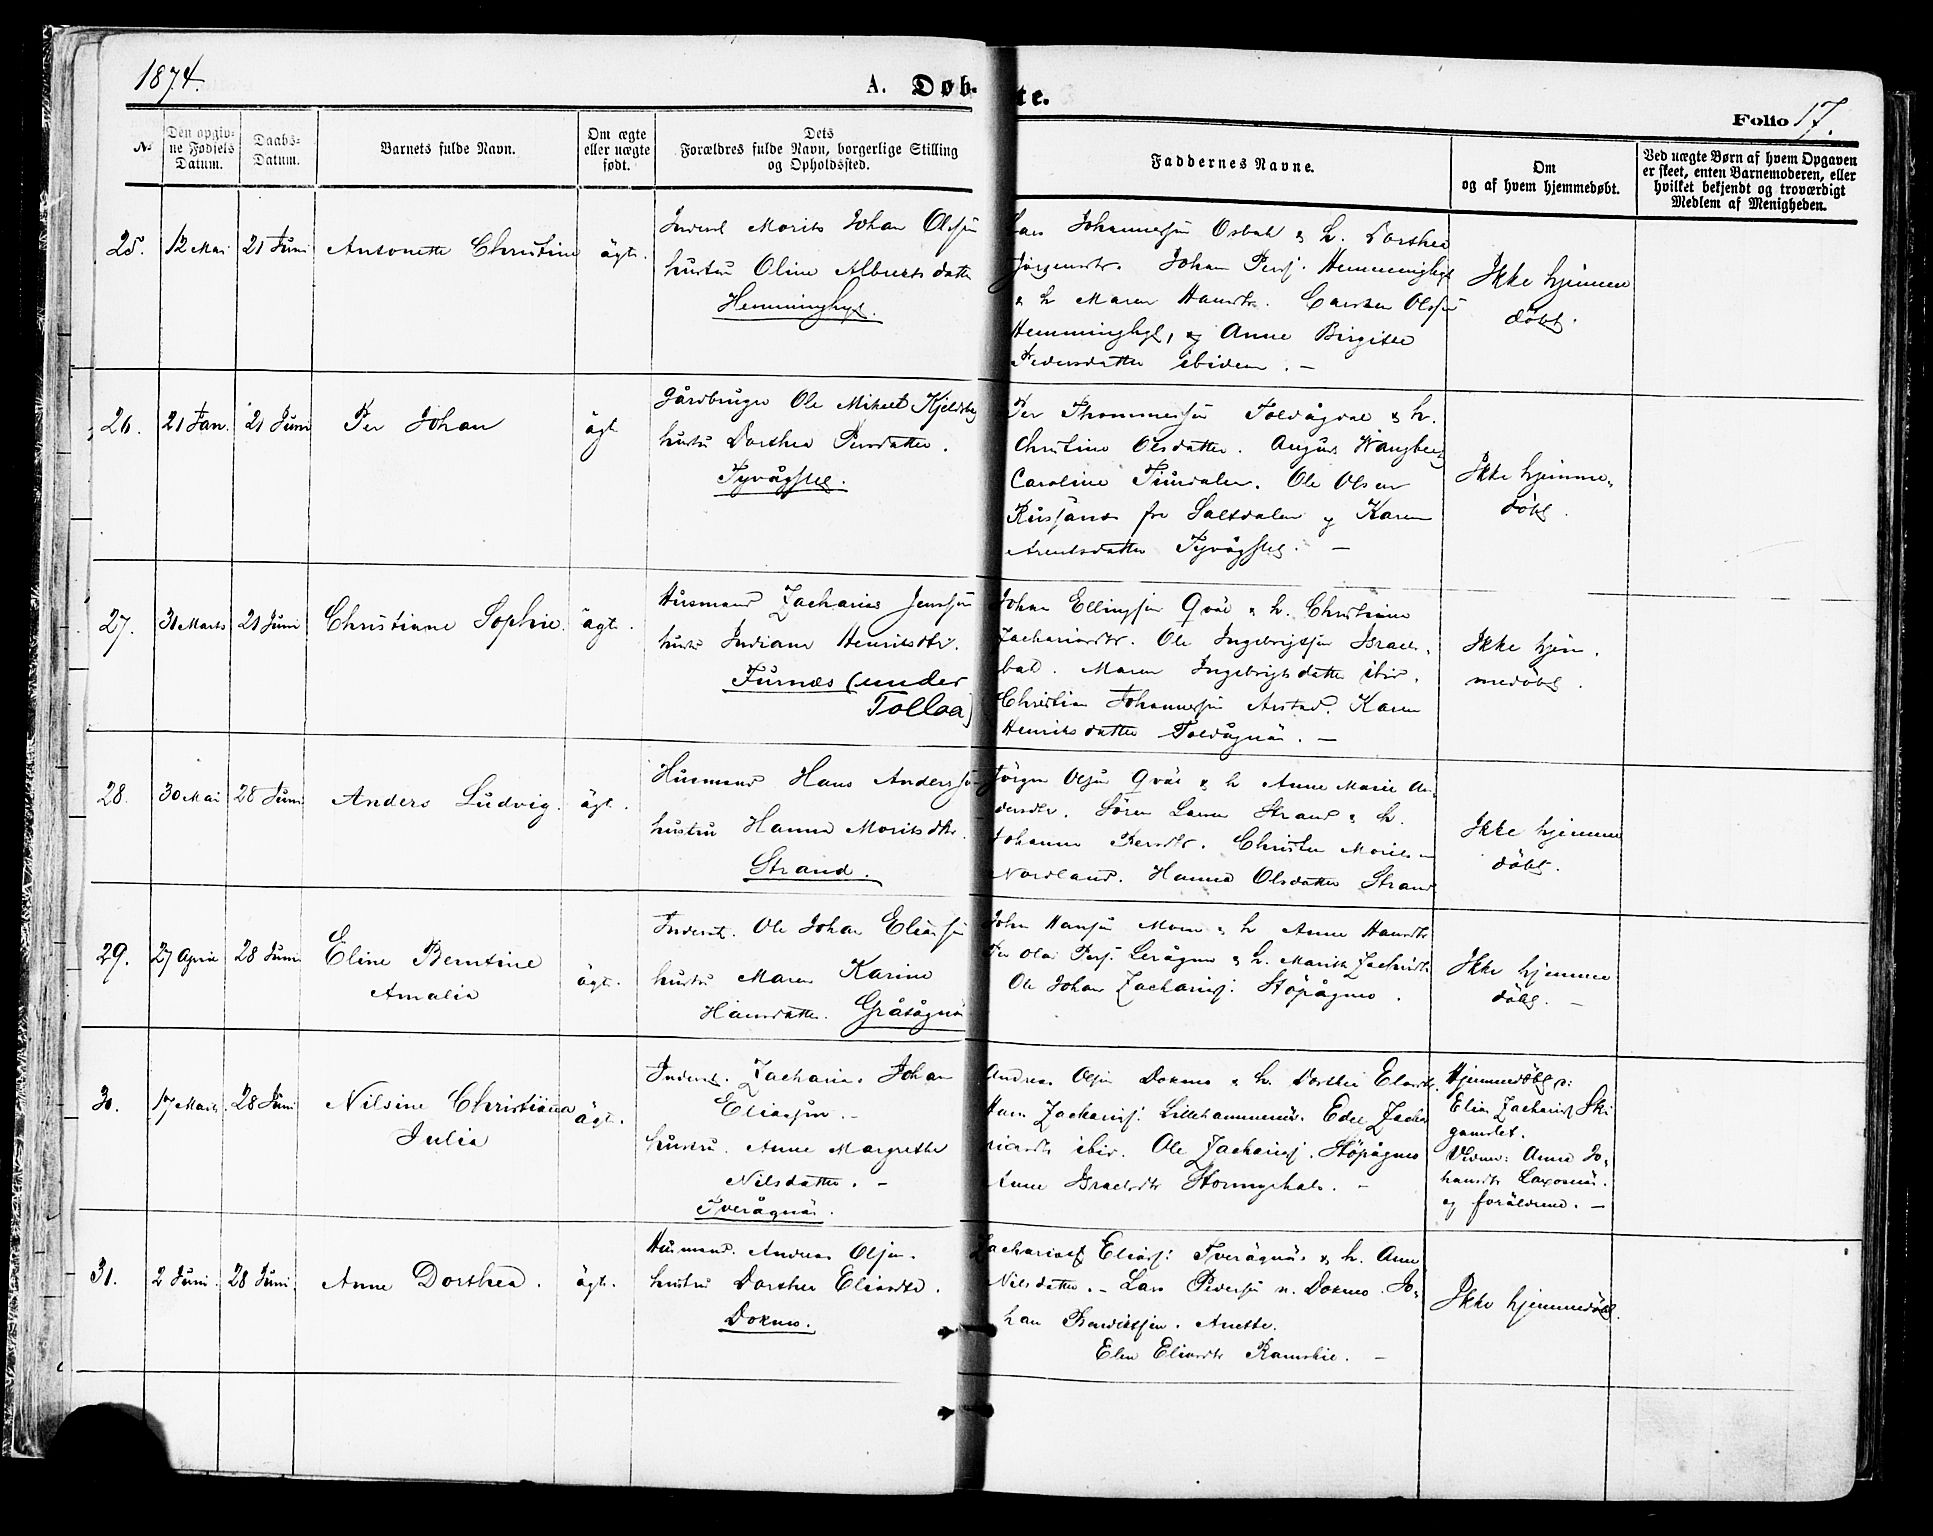 1874.
A. Døb-
te.
Folio 17.
№
Den opgiv-
ne Fødsels
Datum.
Daabs-
Datum.
Barnets fulde Navn.
Om ægte
eller uægte
født.
Dets
Forældres fulde Navn, borgerlige Stilling
og Opholdssted.
Faddernes Navne.
Om
og af hvem hjemmedøbt.
Ved uægte Børn af hvem Opgaven
er skeet, enten Barnemoderen, eller
hvilket bekjendt og troværdigt
Medlem af Menigheden.
25. 12 Mai 21 Juni Antonette Christine ägt.
Inderst Morits Johan Olsen
hustru Oline Albertsdatter
Hemminghyt.
Lars Johannessen & h. Dorthea
Jörgensdtr. Johan Persj. Hemminghyt
& h Maren Hansdtr. Carsten Olsen
Hemminghyt, og Anne Birgitte
Pedersdatter ibidem. —
Ikke hjemme
döbt.
26. 21 Jan. 21 Juni Per Johan ägt
Gårdbruger Ole Mikael Kjeldsberg
hustru Dorthea Persdatter.
Tyvågflet.
Per Thommessen Toldågdal & h.
Christine Olsdatter. August Wangberg
Caroline Olsen
Russånes fra Saltdalen og Karen
Arentsdatter Tyvågflet. —
Ikke hjemme-
döbt.
27. 31 Marts 21 Juni Christiane Sophie. ägt.
Husmand Zacharias Jenssen
hustr Indiane Henriksdtr.
Furnæs (under
Tollåa)
Johan Ellingsen Qväl & h. Christiane
Zachariasdtr. Ole Ingebrigtsen Israels-
bat. Maren Ingebrigtsdatter ibid.
Christian Johannessen Arstad. Karen
Henriksdatter Toldågnäs. —
Ikke hjem-
medöbt.
28. 30 Mai 28 Juni Anders Ludvig. ägt.
Husmand Hans Anderssen
hustru Hanna Moritsdtr.
Strand.
Jörgen Olsen Qväl & h Anne Marie An-
dersdtr. Sören Strand & h.
Johanna Persdtr. Christen Moritsen
Nordland. Hanna Olsdatter Strand
Ikke hjemme
döbt.
29. 27 April 28 Juni Eline Berntine
Amalia ägt.
Inderst. Ole Johan Eliassen
hustru Maren Karine
Hansdatter. Gråtågnäs
John Hansen Moen & h Anne Hansdtr
Per Olai Persj. Leirågmo & h. Zachrisdtr
Ole Johan Zachariasj. Stöpågmo.
Ikke hjemme
döbt. —
30. 17 Marts 28 Juni Nilsine Christiana
Julia ägt.
Inderst. Zacharias Johan
Eliassen. —
hustru. Anne Margrethe
Nilsdatter. —
Tverågnäs.
Andreas Olsen Dokmo & h. Dorthea Eliasdtr.
Hans Zachariasj. Lillehammeren. Edel Zacha
riasdtr ibid. Ole Zachariasj. Stöpågmo
Anne Israelsdtr Stormyrhals. —
Hjemmedöbt af:
Elias Zachariasj Ski
gamslet.
Vidner: Anna Jo-
hansdtr Laxosnäs.
og forældrene. —
31. 2 Juni. 28 Juni. Anne Dorthea. ägt.
Husmand. Andreas Olsen.
hustru Dorthea Eliasdtr.
Dokmo.
Zacharias Eliasj. Tverågnäs & h. Anne
Nilsdatter. — Lars Pedersen n. Dokmo. Jo-
han. Anette.
Elen Eliasdtr Ramskie. —
Ikke hjemmedöbt.